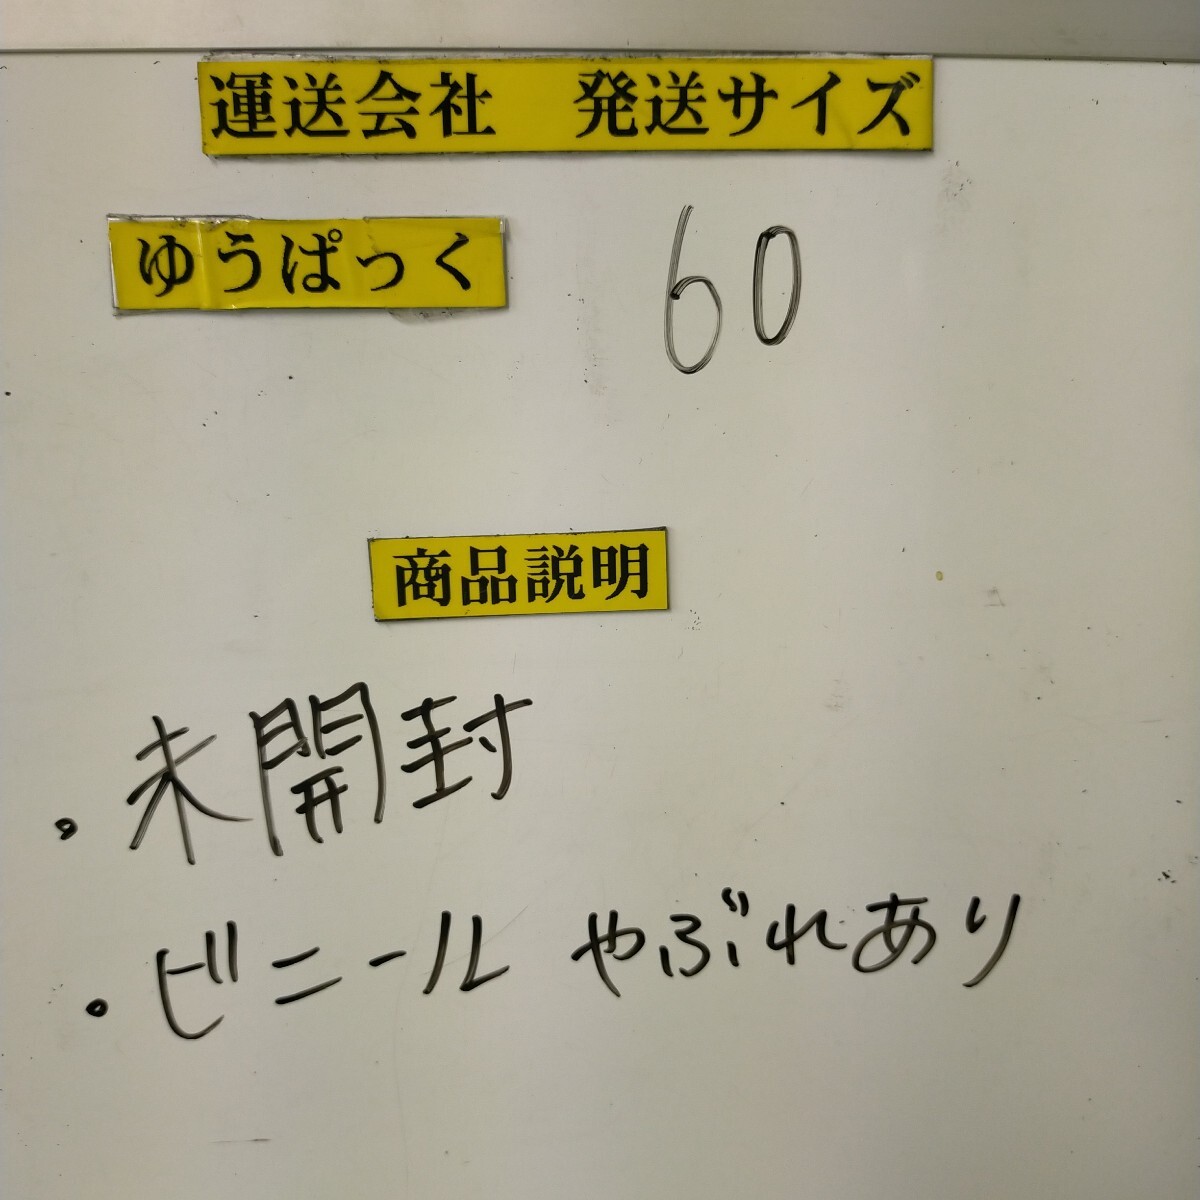 運送会社　発送サイズ
ゆうぱっく 60
商品説明
・未開封
・ビニール やぶれあり